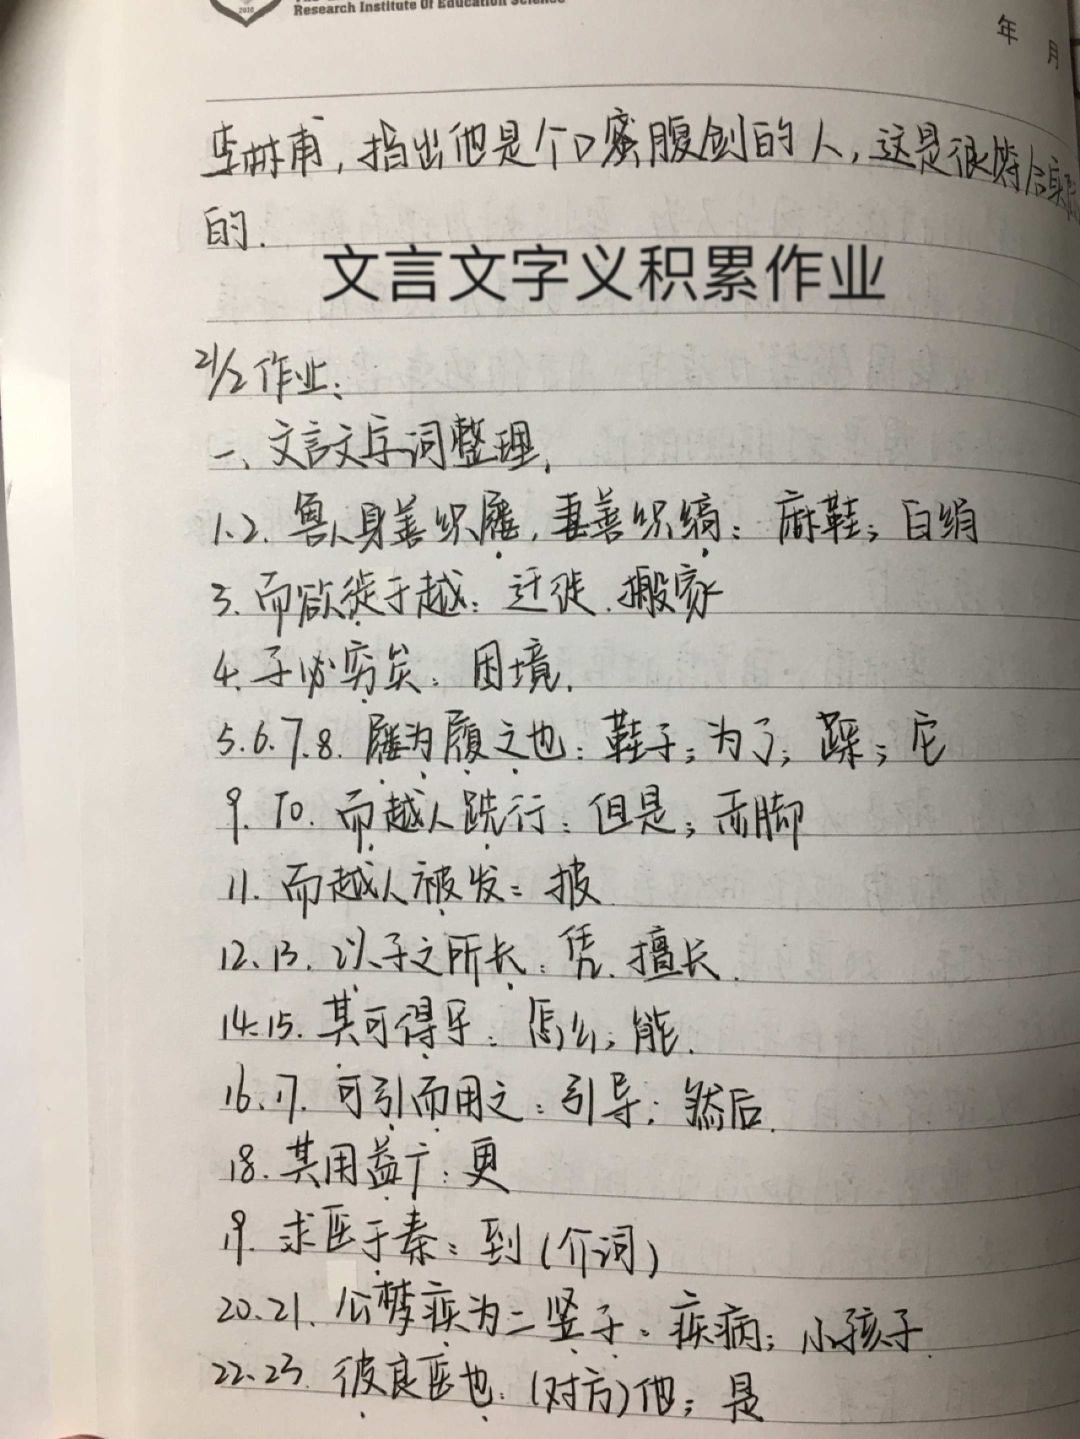 Research Institute Of Education Science
年 月
李林甫，指出他是个口蜜腹剑的人，这是很符合实际
的．
文言文字义积累作业
21/2 作业：
一、文言文字词整理．
1.2. 鲁人身善织屦，妻善织缟：麻鞋；白绢
3. 而欲徙于越：迁徙．搬家
4. 子必穷矣：困境．
5.6.7.8. 屦为履之也：鞋子；为了；踩；它
9. 10. 而越人跣行：但是；赤脚
11. 而越人被发：披
12.13. 以子之所长：凭．擅长．
14.15. 其可得乎：怎么；能．
16.17. 可引而用之：引导；然后．
18. 其用益广：更
19. 求医于秦：到(介词)
20.21. 公梦疾为二竖子：疾病；小孩子．
22.23. 彼良医也：(对方)他；是